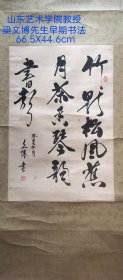 山东艺术学院教授
梁文博先生早期书法
66.5X44.6cm
竹影松风蕉
月茶香琴韵
書声